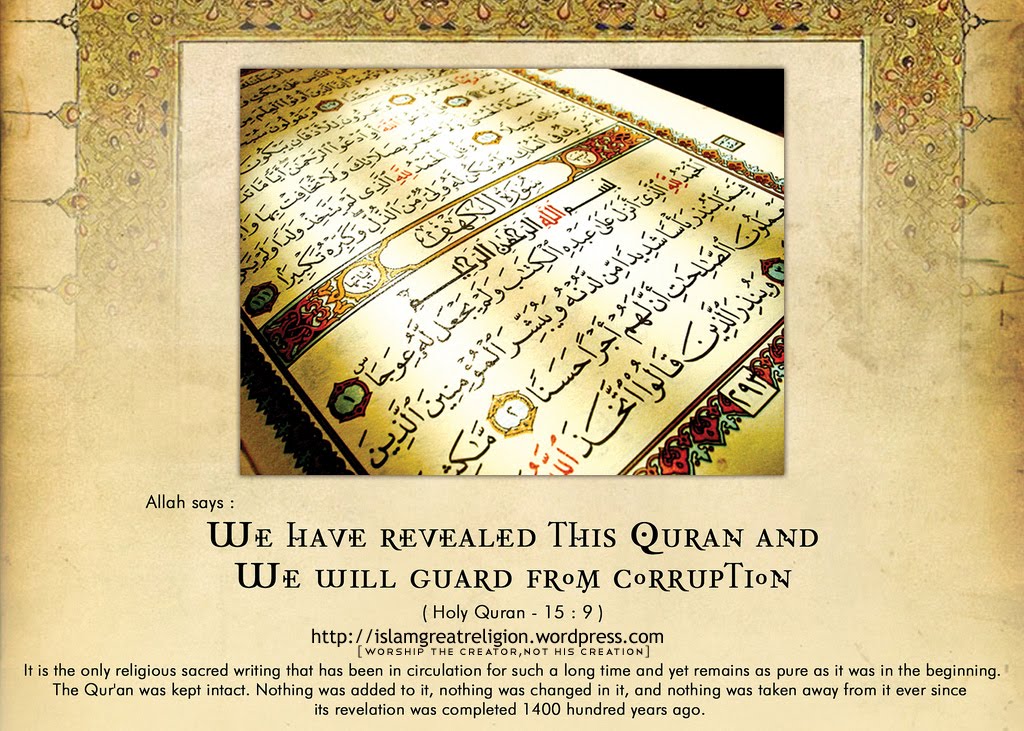 ٱلرَّحْمَٰنَ أَيًّا مَّا
بِصَلَاتِكَ وَلَا تُخَافِتْ بِهَا
ٱلَّذِى لَمْ يَتَّخِذْ وَلَدًا وَلَمْ
وَلِىٌّ مِّنَ ٱلذُّلِّ وَكَبِّرْهُ تَكْبِيرًا ١١١
سُورَةُ الكَهْفِ
بِسْمِ ٱللَّهِ ٱلرَّحْمَٰنِ ٱلرَّحِيمِ
ٱلَّذِىٓ أَنزَلَ عَلَىٰ عَبْدِهِ ٱلْكِتَٰبَ وَلَمْ يَجْعَل لَّهُۥ عِوَجَاۜ ١
قَيِّمًا لِّيُنذِرَ بَأْسًا شَدِيدًا مِّن لَّدُنْهُ وَيُبَشِّرَ ٱلْمُؤْمِنِينَ ٱلَّذِينَ
يَعْمَلُونَ ٱلصَّٰلِحَٰتِ أَنَّ لَهُمْ أَجْرًا حَسَنًا ٢
٣ وَيُنذِرَ ٱلَّذِينَ قَالُوا۟ ٱتَّخَذَ ٱللَّهُ
٢٩٣
Allah says :
We have revealed This Quran and
We will guard from corruption
( Holy Quran - 15 : 9 )
http://islamgreatreligion.wordpress.com
[WORSHIP THE CREATOR,NOT HIS CREATION]
It is the only religious sacred writing that has been in circulation for such a long time and yet remains as pure as it was in the beginning.
The Qur'an was kept intact. Nothing was added to it, nothing was changed in it, and nothing was taken away from it ever since
its revelation was completed 1400 hundred years ago.